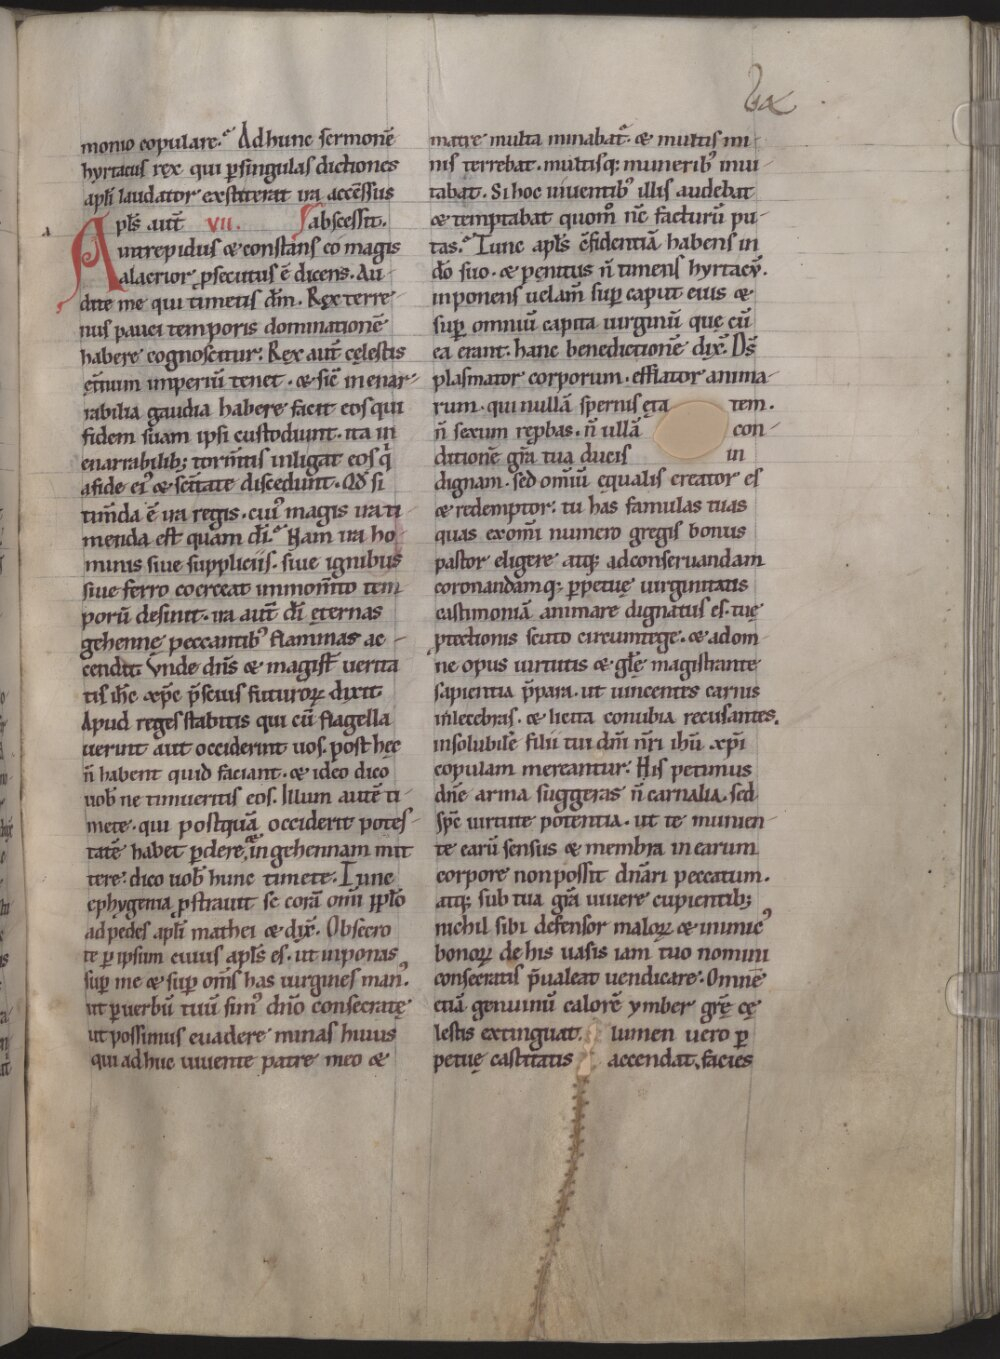 lx
monio copulare. Ad hunc sermonē
hyrtacus rex qui p singulas dictiones
apl̄i laudator exstiterat ira accensus
apls̄ aut̄ vii. abscessit.
A intrepidus & constans eo magis
alacrior p̱secutus ē dicens. Au-
dite me qui timetis dm̄. Rex terre-
nus pauci temporis dominationē
habere cognoscitur. Rex aut̄ cęlestis
et̄num imperiū tenet. & sic̄ inenar-
rabilia gaudia habere facit eos qui
fidem suam ipsi custodiunt. ita in
enarrabilib; torm̄tis inligat eos q̄
a fide ei' & sc̄itate discedunt. Qd̄ si
tim̄da ē ira regis. cui' magis ira ti-
menda est quam dī. Nam ira ho-
minis siue suppliciis. siue ignibus
siue ferro coerceat in mom̄to tem
porū desinit. ira aut̄ dī ęternas
gehennę peccantib' flammas ac-
cendit. Vnde dn̄s & magist̄ uerita
tis ih̄c xp̄c p̄scius futuroꝝ dixit
Apud reges stabitis qui cū flagella
uerint aut occiderint uos. post hęc
n̄ habent quid faciant. & ideo dico
uob̄ ne timueritis eos. Illum autē ti-
mete. qui postquā occiderit potes-
tatē habet p̱dere & in gehennam mit
tere. dico uob̄ hunc timete. Tunc
ephygenia p̱strauit se corā om̄i pp̄lo
ad pedes apl̄i mathei & dix̄. Obsecro
te p̱ ipsum cuius apl̄s es. ut inponas
sup̱ me & sup̱ om̄s has uirgines man'.
ut p̱ uerbū tuū sim' dn̄o consecratę
ut possimus euadere minas huius
qui adhuc uiuente patre meo &
matre multa minabat̄. & multis mi-
nis terrebat. multisq; munerib' inui-
tabat. Si hoc uiuentib' illis audebat
& temptabat quom̄ nc̄ facturū pu-
tas. Tunc apl̄s c̄fidentiā habens in
dō suo. & penitus n̄ timens hyrtacū.
inponens uelam̄ sup̱ caput eius &
sup̱ omniū capita uirginū que cū
ea erant. hanc benedictionē dix̄. Ds̄
plasmator corporum. efflator anima-
rum. qui nullā spernis eta tem.
n̄ sexum rep̱bas. n̄ ullā con-
ditionē gr̄a tua ducis in
dignam. sed om̄iū equalis creator es
& redemptor. tu has famulas tuas
quas ex om̄i numero gregis bonus
pastor eligere atq; ad conseruandam
coronandamq; p̱petuę uirginitatis
castimoniā animare dignatus es. tuę
p̱tectionis scuto circumtege. & ad om-
ne opus uirtutis & gl̄ę magistrante
sapientia p̄para. ut uincentes carnis
inlecebras. & licita conubia recusantes.
insolubilē filii tui dn̄i nr̄i ih̄u xp̄i
copulam mereantur. His petimus
dn̄e arma suggeras n̄ carnalia. sed
sp̄c uirtute potentia. ut te munien-
te earū sensus & membra in earum
corpore non possit dn̄ari peccatum.
atq; sub tua gr̄a uiuere cupientib;
nichil sibi defensor maloꝝ & inimic'
bonoꝝ de his uasis iam tuo nomini
consecratis p̄ualeat uendicare. Omnē
etiā genuinū calorē ymber gr̄ę cę
lestis extinguat. lumen uero p̱
petuę castitatis accendat. facies